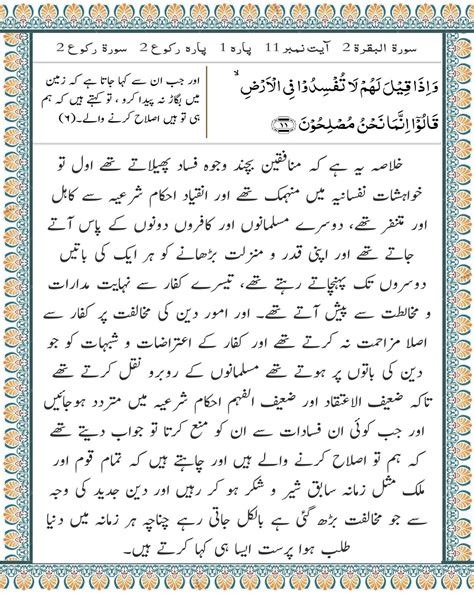 سورة البقرة 2 آیت نمبر 11 پارہ 1 پارہ رکوع 2 سورۃ رکوع 2
وَاِذَا قِيْلَ لَهُمْ لَا تُفْسِدُوْا فِى الْاَرْضِ ۙ
قَالُوْٓا اِنَّمَا نَحْنُ مُصْلِحُوْنَ ﴿۱۱﴾
اور جب ان سے کہا جاتا ہے کہ زمین
میں بگاڑ نہ پیدا کرو ، تو کہتے ہیں کہ ہم
ہی تو ہیں اصلاح کرنے والے۔(۶)
خلاصہ یہ ہے کہ منافقین بچند وجوہ فساد پھیلاتے تھے اول تو
خواہشات نفسانیہ میں منہمک تھے اور انقیاد احکام شرعیہ سے کاہل
اور متنفر تھے، دوسرے مسلمانوں اور کافروں دونوں کے پاس آتے
جاتے تھے اور اپنی قدر و منزلت بڑھانے کو ہر ایک کی باتیں
دوسروں تک پہنچاتے رہتے تھے، تیسرے کفار سے نہایت مدارات
و مخالطت سے پیش آتے تھے۔ اور امور دین کی مخالفت پر کفار سے
اصلا مزاحمت نہ کرتے تھے اور کفار کے اعتراضات و شبہات کو جو
دین کی باتوں پر ہوتے تھے مسلمانوں کے روبرو نقل کرتے تھے
تاکہ ضعیف الاعتقاد اور ضعیف الفہم احکام شرعیہ میں متردد ہوجائیں
اور جب کوئی ان فسادات سے ان کو منع کرتا تو جواب دیتے تھے
کہ ہم تو اصلاح کرنے والے ہیں اور چاہتے ہیں کہ تمام قوم اور
ملک مثل زمانہ سابق شیر و شکر ہو کر رہیں اور دین جدید کی وجہ
سے جو مخالفت بڑھ گئی ہے بالکل جاتی رہے چناچہ ہر زمانہ میں دنیا
طلب ہوا پرست ایسا ہی کہا کرتے ہیں۔